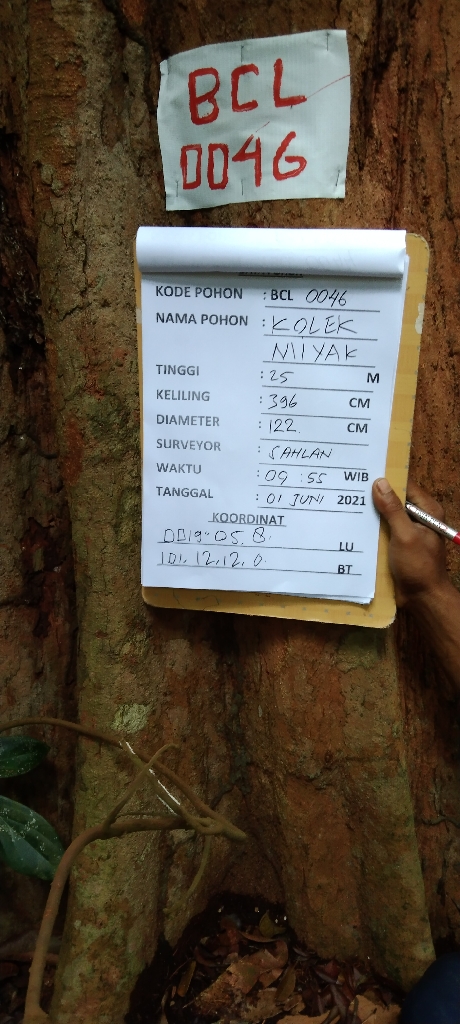 BCL
0046
KODE POHON : BCL 0046
NAMA POHON : KOLEK
NIIYAK
TINGGI : 25 M
KELILING : 396 CM
DIAMETER : 122. CM
SURVEYOR : SAHLAN
WAKTU : 09 : 55 WIB
TANGGAL : 01 JUNI 2021
KOORDINAT
0019. 05. 8. LU
101. 12.12. 0. BT